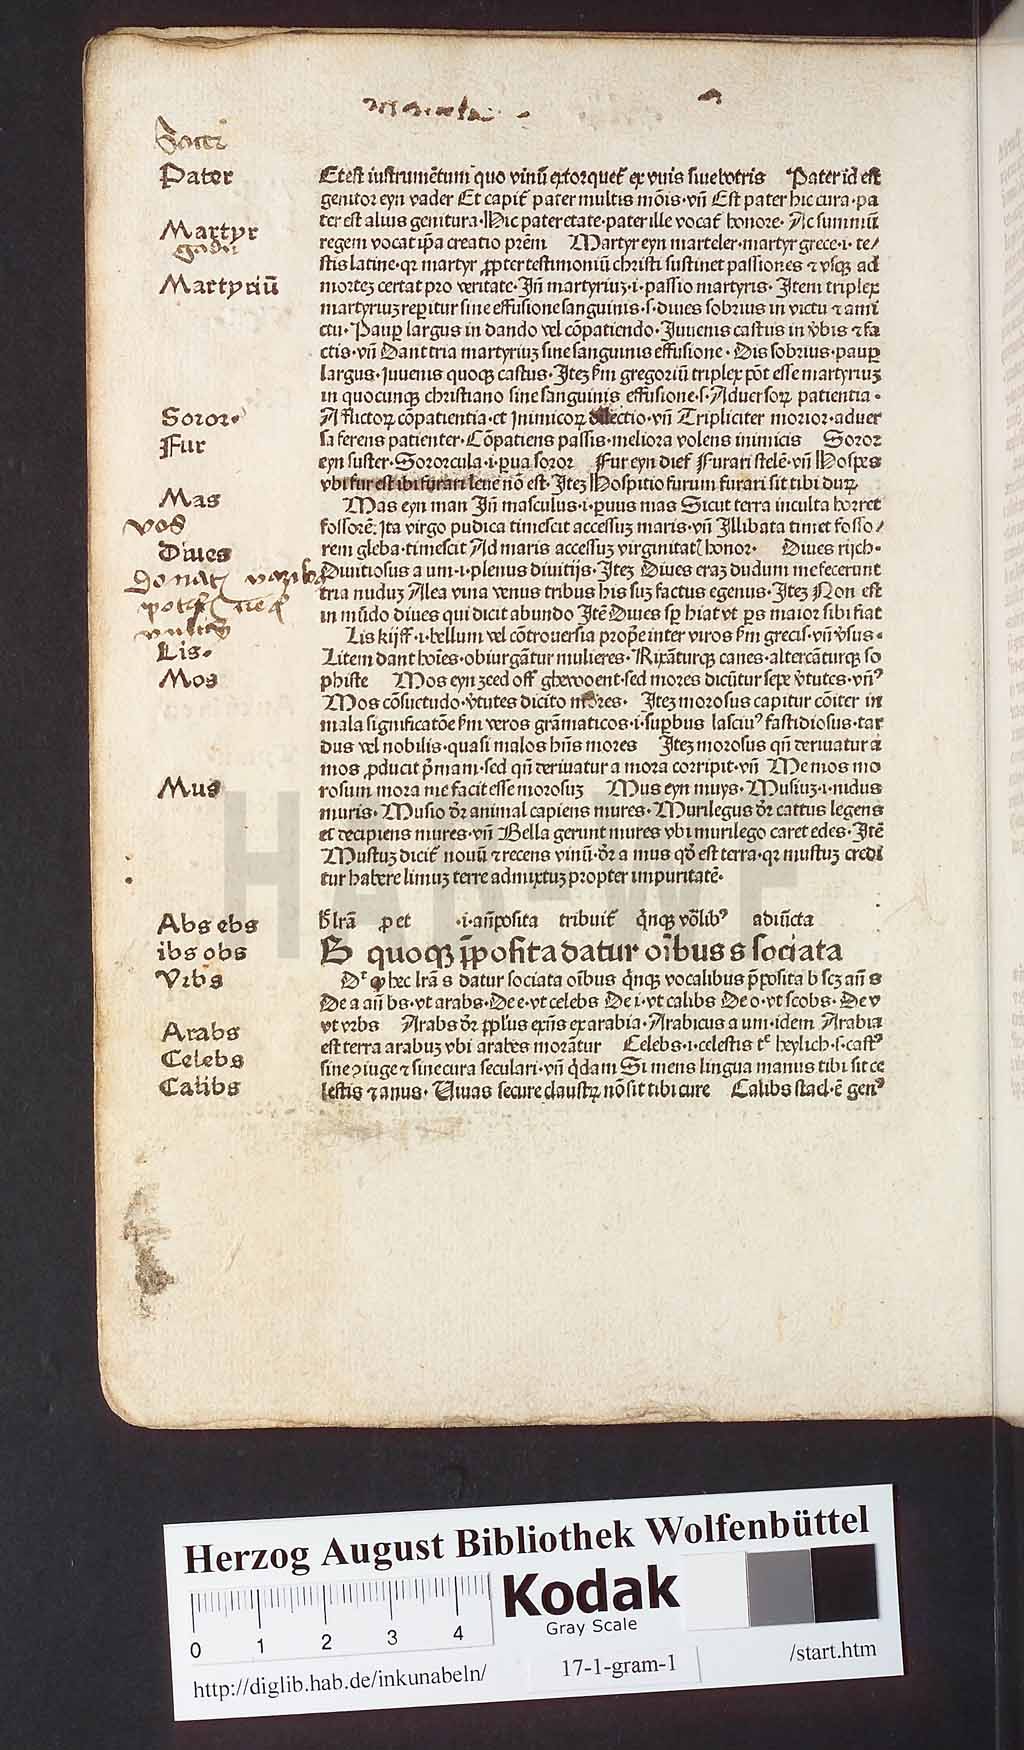 Pater
Martyr
Martyriū
Soror·
Fur
Mas
vos
Diues
Lis·
Mos
Mus
Abs ebs
ibs obs
Vrbs
Arabs
Celebs
Calibs
Et est instrumētum quo vinū extorquet᷑ ex vuis siue botris Pater id est
genitor eyn vader Et capit᷑ pater multis mōis·vñ Est pater hic cura·pa
ter est alius genitura·Hic pater etate·pater ille vocat᷑ honore·Ac summū
regem vocat ip̄a creatio prēm Martyr eyn marteler·martyr grece·i·te/
stis latine·qꝛ martyr ꝓpter testimoniū christi sustinet passiones ⁊ vsqꝫ ad
morteꝫ certat pro veritate·Jñ martyriuꝫ·i·passio martyris·Jtem triplex
martyriuꝫ reꝑitur sine effusione sanguinis·s·diues sobrius in victu ⁊ ami
ctu·Pauꝑ largus in dando vel cōpatiendo·Juuenis castus in v̄bis ⁊ fa
ctis·vñ Dant tria martyriuꝫ sine sanguinis effusione·Dis sobrius·pauꝑ
largus·iuuenis quoqꝫ castus·Jteꝫ ẜm gregoriū triplex pōt esse martyriuꝫ
in quocunqꝫ christiano sine sanguinis effusione·s·Aduersoꝝ patientia·
Afflictoꝝ cōpatientia·et Jnimicoꝝ dilectio·vñ Tripliciter morior·aduer
sa ferens patienter·Cōpatiens passis·meliora volens inimicis Soror
eyn suster·Sororcula·i·ꝑua soror Fur eyn dief Furari stelē·vñ Hospes
vbi fur est ibi furari leue nō est·Jteꝫ Hospitio furum furari sit tibi durꝝ
Mas eyn man Jñ masculus·i·ꝑuus mas Sicut terra inculta horret
fossorē·Jta virgo pudica timescit accessuꝫ maris·vñ Jllibata timet fosso/
rem gleba·timescit Ad maris accessuꝫ virginitat᷑ honor· Diues rijch·
Diuitiosus a um·i·plenus diuitijs·Jteꝫ Diues eraꝫ dudum me fecerunt
tria nuduꝫ Alea vina venus tribus his suꝫ factus egenus·Jteꝫ Non est
in mūdo diues qui dicit abundo Jtē Diues sꝑ hiat vt ꝑs maior sibi fiat
Lis kijff·i·bellum vel cōtrouersia prope inter viros ẜm grecis·vñ v̄sus·
Litem dant hoīes·obiurgātur mulieres·Rixāturqꝫ canes·altercāturqꝫ so
phiste Mos eyn zeed off ghewoent·sed mores dicūtur sepe v̄tutes·vñꝰ
Mos cōsuetudo·v̄tutes dicito mores· Jteꝫ morosus capitur cōiter in
mala significatōe ẜm veros grāmaticos·i·suꝑbus lasciuꝰ fastidiosus·tar
dus vel nobilis·quasi malos hñs mores Jteꝫ morosus qñ deriuatur a
mos ꝓducit p̄mam·sed qñ deriuatur a mora corripit·vñ Me mos mo
rosum mora me facit esse morosuꝫ Mus eyn muys·Musiuꝫ·i·nidus
muris·Musio dr̄ animal capiens mures·Murilegus dr̄ cattus legens
et decipiens mures·vñ Bella gerunt mures vbi murilego caret edes·Jtē
Mustuꝫ dicit᷑ nouū ⁊ recens vinū·dr̄ a mus qd̄ est terra·qꝛ mustuꝫ credi
tur habere limuꝫ terre admixtuꝫ propter impuritatē·
lrā ꝓ et ·i·añposita tribuit᷑ q̄nqꝫ vōlibꝰ adiūcta
B quoqꝫ p̄posita datur oībus s sociata
hec lrā s datur sociata oībus q̄nqꝫ vocalibus p̄posita b scꝫ añ s
De a añ bs·vt arabs·De e·vt celebs De i·vt calibs De o·vt scobs·De v
vt vrbs Arabs dr̄ exñs ex arabia·Arabicus a um·idem Arabia
est terra arabuꝫ vbi arabes morātur Celebs·i·celestis heylich·s·castꝰ
sine ɔiuge ⁊ sine cura seculari·vñ q̄dam Si mens lingua manus tibi sit ce
lestis ⁊ anus·Viuas secure claustꝝ nō sit tibi cure Calibs stad·ē genꝰ
Herzog August Bibliothek Wolfenbüttel
Kodak
Gray Scale
0 1 2 3 4
http://diglib.hab.de/inkunabeln/
17-1-gram-1
/start.htm
HAB-WF